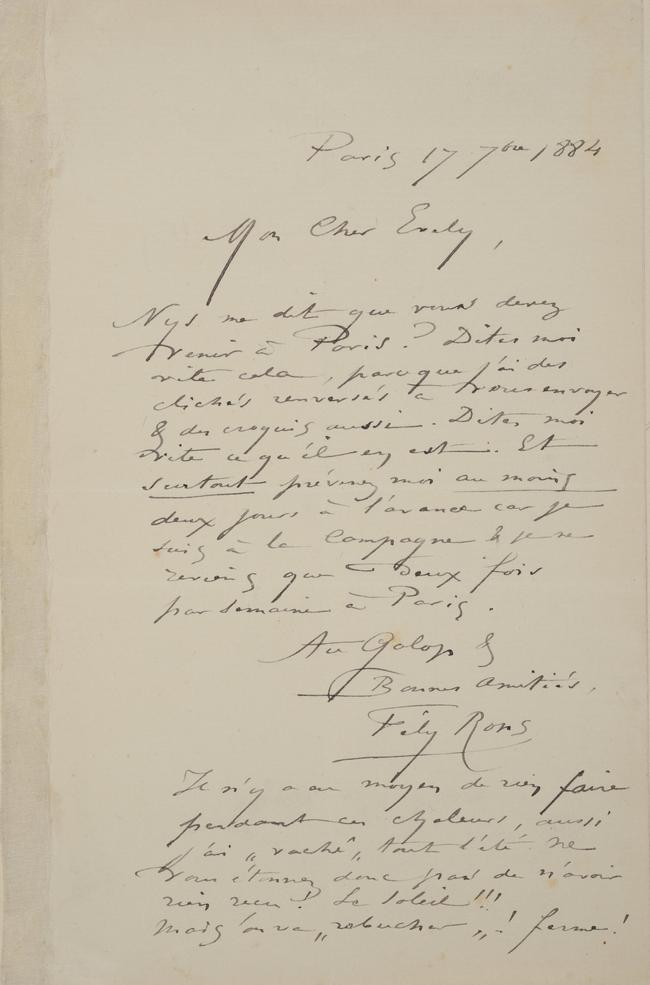 Paris 17 7bre 1884
Mon Cher Evely,
Nys me dit que vous devez
venir à Paris ? Dites moi
vite cela, parceque j'ai des
clichés renversés à vous envoyer
& des croquis aussi. Dites moi
vite ce qu'il en est. Et
surtout prévenez moi au moins
deux jours à l'avance car je
suis à la Campagne & je ne
reviens que deux fois
par semaine à Paris.
Au Galop &
Bonnes Amitiés,
Fély Rops
Il n'y a eu moyen de rien faire
pendant ces chaleurs, aussi
j'ai „vaché„ tout l'été ne
vous étonnez donc pas de n'avoir
rien reçu ! Le Soleil !!!
Mais on va „rebucher„ ! ferme !